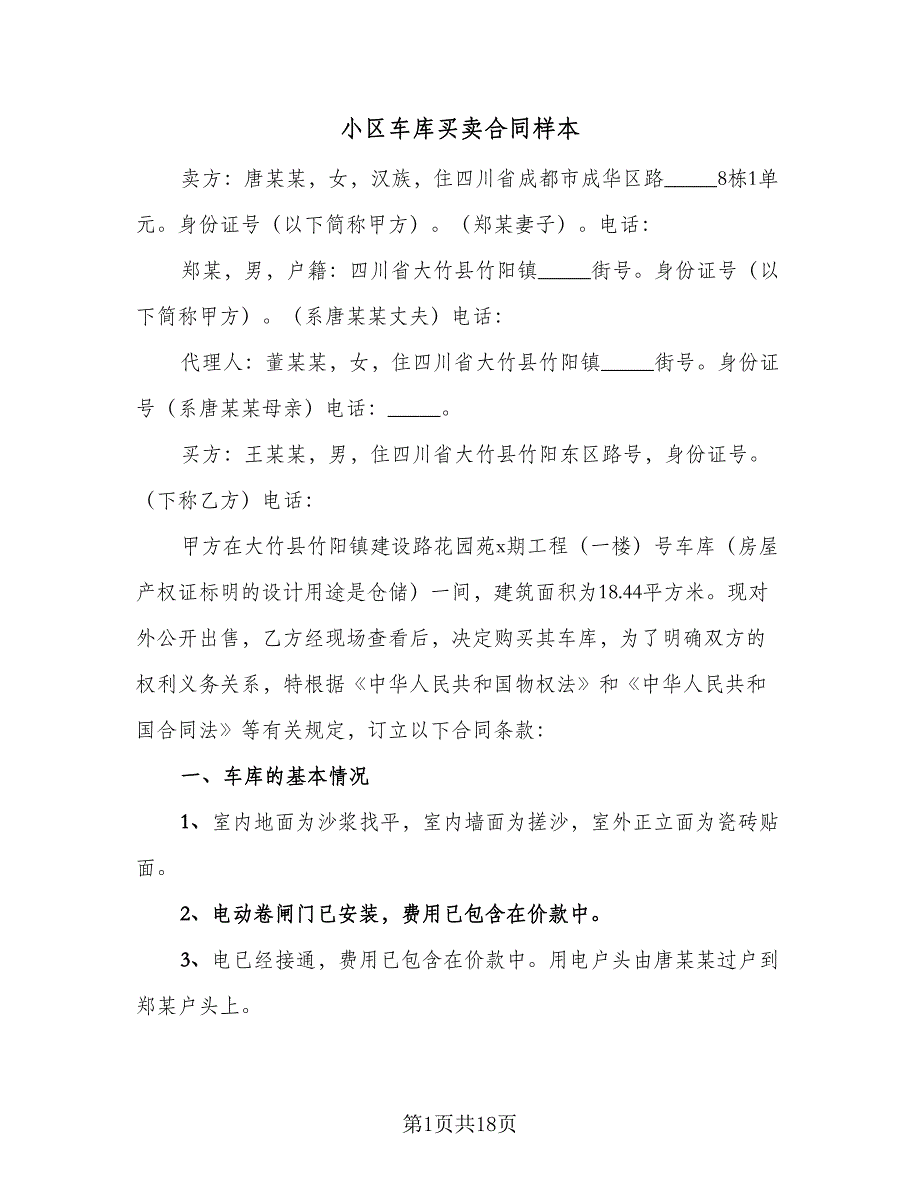 小区车库买卖合同样本
卖方：唐某某，女，汉族，住四川省成都市成华区路_____8栋1单
元。身份证号（以下简称甲方）。（郑某妻子）。电话：
郑某，男，户籍：四川省大竹县竹阳镇_____街号。身份证号（以
下简称甲方）。（系唐某某丈夫）电话：
代理人：董某某，女，住四川省大竹县竹阳镇_____街号。身份证
号（系唐某某母亲）电话：_____。
买方：王某某，男，住四川省大竹县竹阳东区路号，身份证号。
（下称乙方）电话：
甲方在大竹县竹阳镇建设路花园苑x期工程（一楼）号车库（房屋
产权证标明的设计用途是仓储）一间，建筑面积为18.44平方米。现对
外公开出售，乙方经现场查看后，决定购买其车库，为了明确双方的
权利义务关系，特根据《中华人民共和国物权法》和《中华人民共和
国合同法》等有关规定，订立以下合同条款：
一、车库的基本情况
1、室内地面为沙浆找平，室内墙面为搓沙，室外正立面为瓷砖贴
面。
2、电动卷闸门已安装，费用已包含在价款中。
3、电已经接通，费用已包含在价款中。用电户头由唐某某过户到
郑某户头上。
第1页共18页